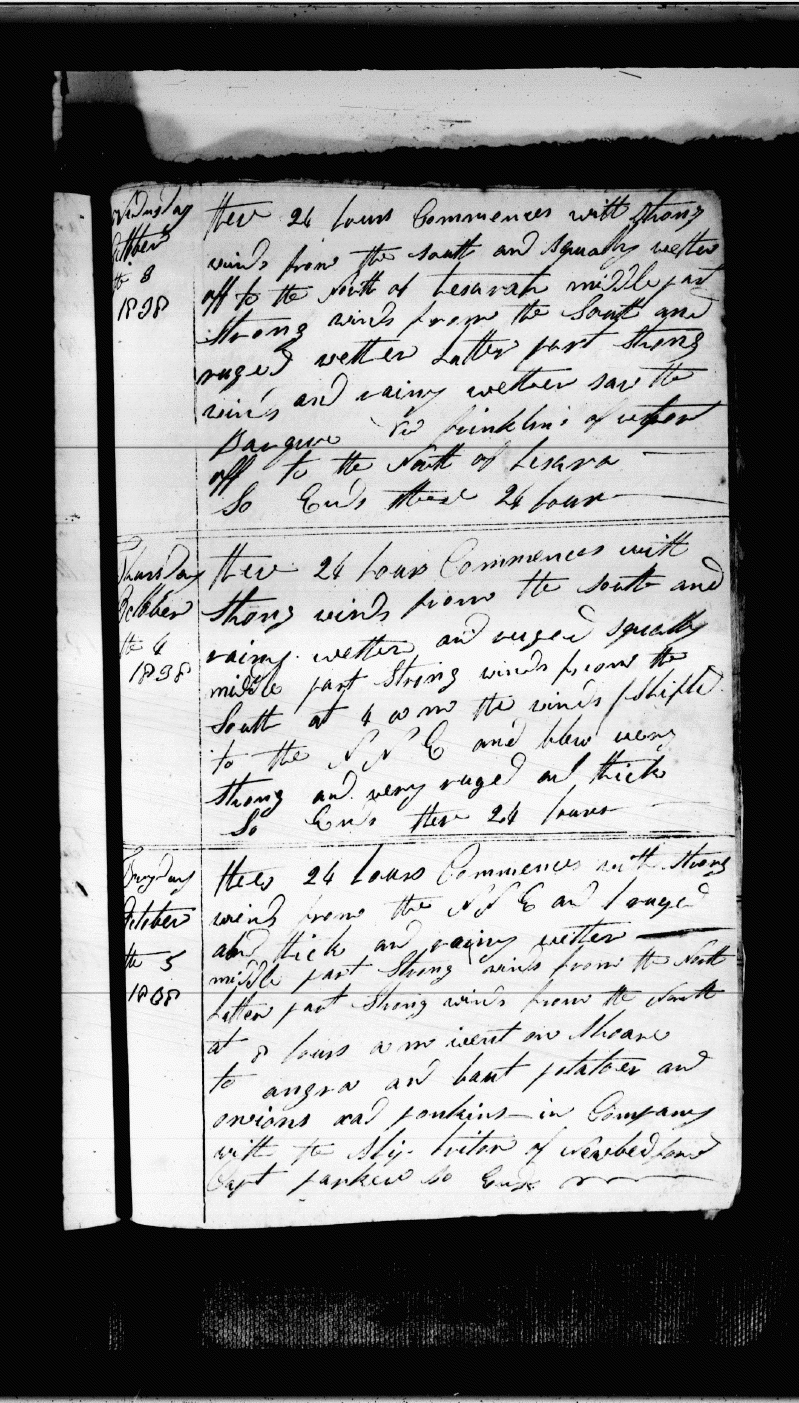 Wednsday
October
the 3
1838
these 24 hours Commences with strong
winds from the South and squally wetter
off to the North of tesarah middle part
Strong winds from the South and
ruged wetter Latter part Strong
winds and rainy wetter saw the
off to the North of tesara
So Ends these 24 hours
Thursday
October
the 4
1838
these 24 hours Commences with
Strong winds from the South and
rainy wetter and ruged squally
middle part Strong winds from the
South at 4 a m the winds shifted
to the N N E and blew very
strong and very ruged and thick
So Ends these 24 hours
Fryday
October
the 5
1838
these 24 hours Commences with strong
winds from the N N E and ruged
and thick and rainy wetter
middle part Strong winds from the North
Latter part Strong winds from the North
at 8 hours a m went on Shoare
to angra and baut potatoes and
onions and ponkins in Company
with to Ship triton of Newbedford
Capt parker so Ends